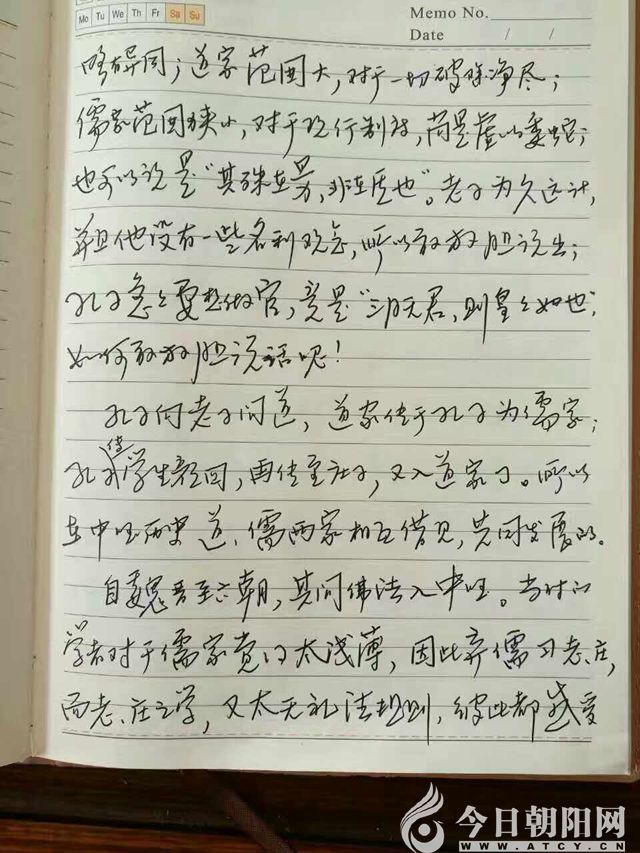 Mo Tu We Th Fr Sa Su
Memo No.
Date / /
略有异同；道家范围大，对于一切破除净尽；
儒家范围狭小，对于现行制度，尚是虚以委蛇；
也可以说是“其殊在量，非在质也”。老子为久远计，
并且他没有一些名利观念，所以敢放胆说出；
孔子急急要想做官，竟是“三月无君，则皇皇如也”，
如何敢放胆说话呢！
孔子向老子问道，道家传于孔子为儒家；
孔子传学生颜回，再传至庄子，又入道家了。所以
在中国历史道、儒两家相互借见，共同发展的。
自魏晋至六朝，其间佛法入中国。当时的
学者对于儒家觉得太浅薄，因此弃儒习老、庄，
而老、庄之学，又太无礼法规则，彼此都感受
今日朝阳网
WWW.ATCY.CN